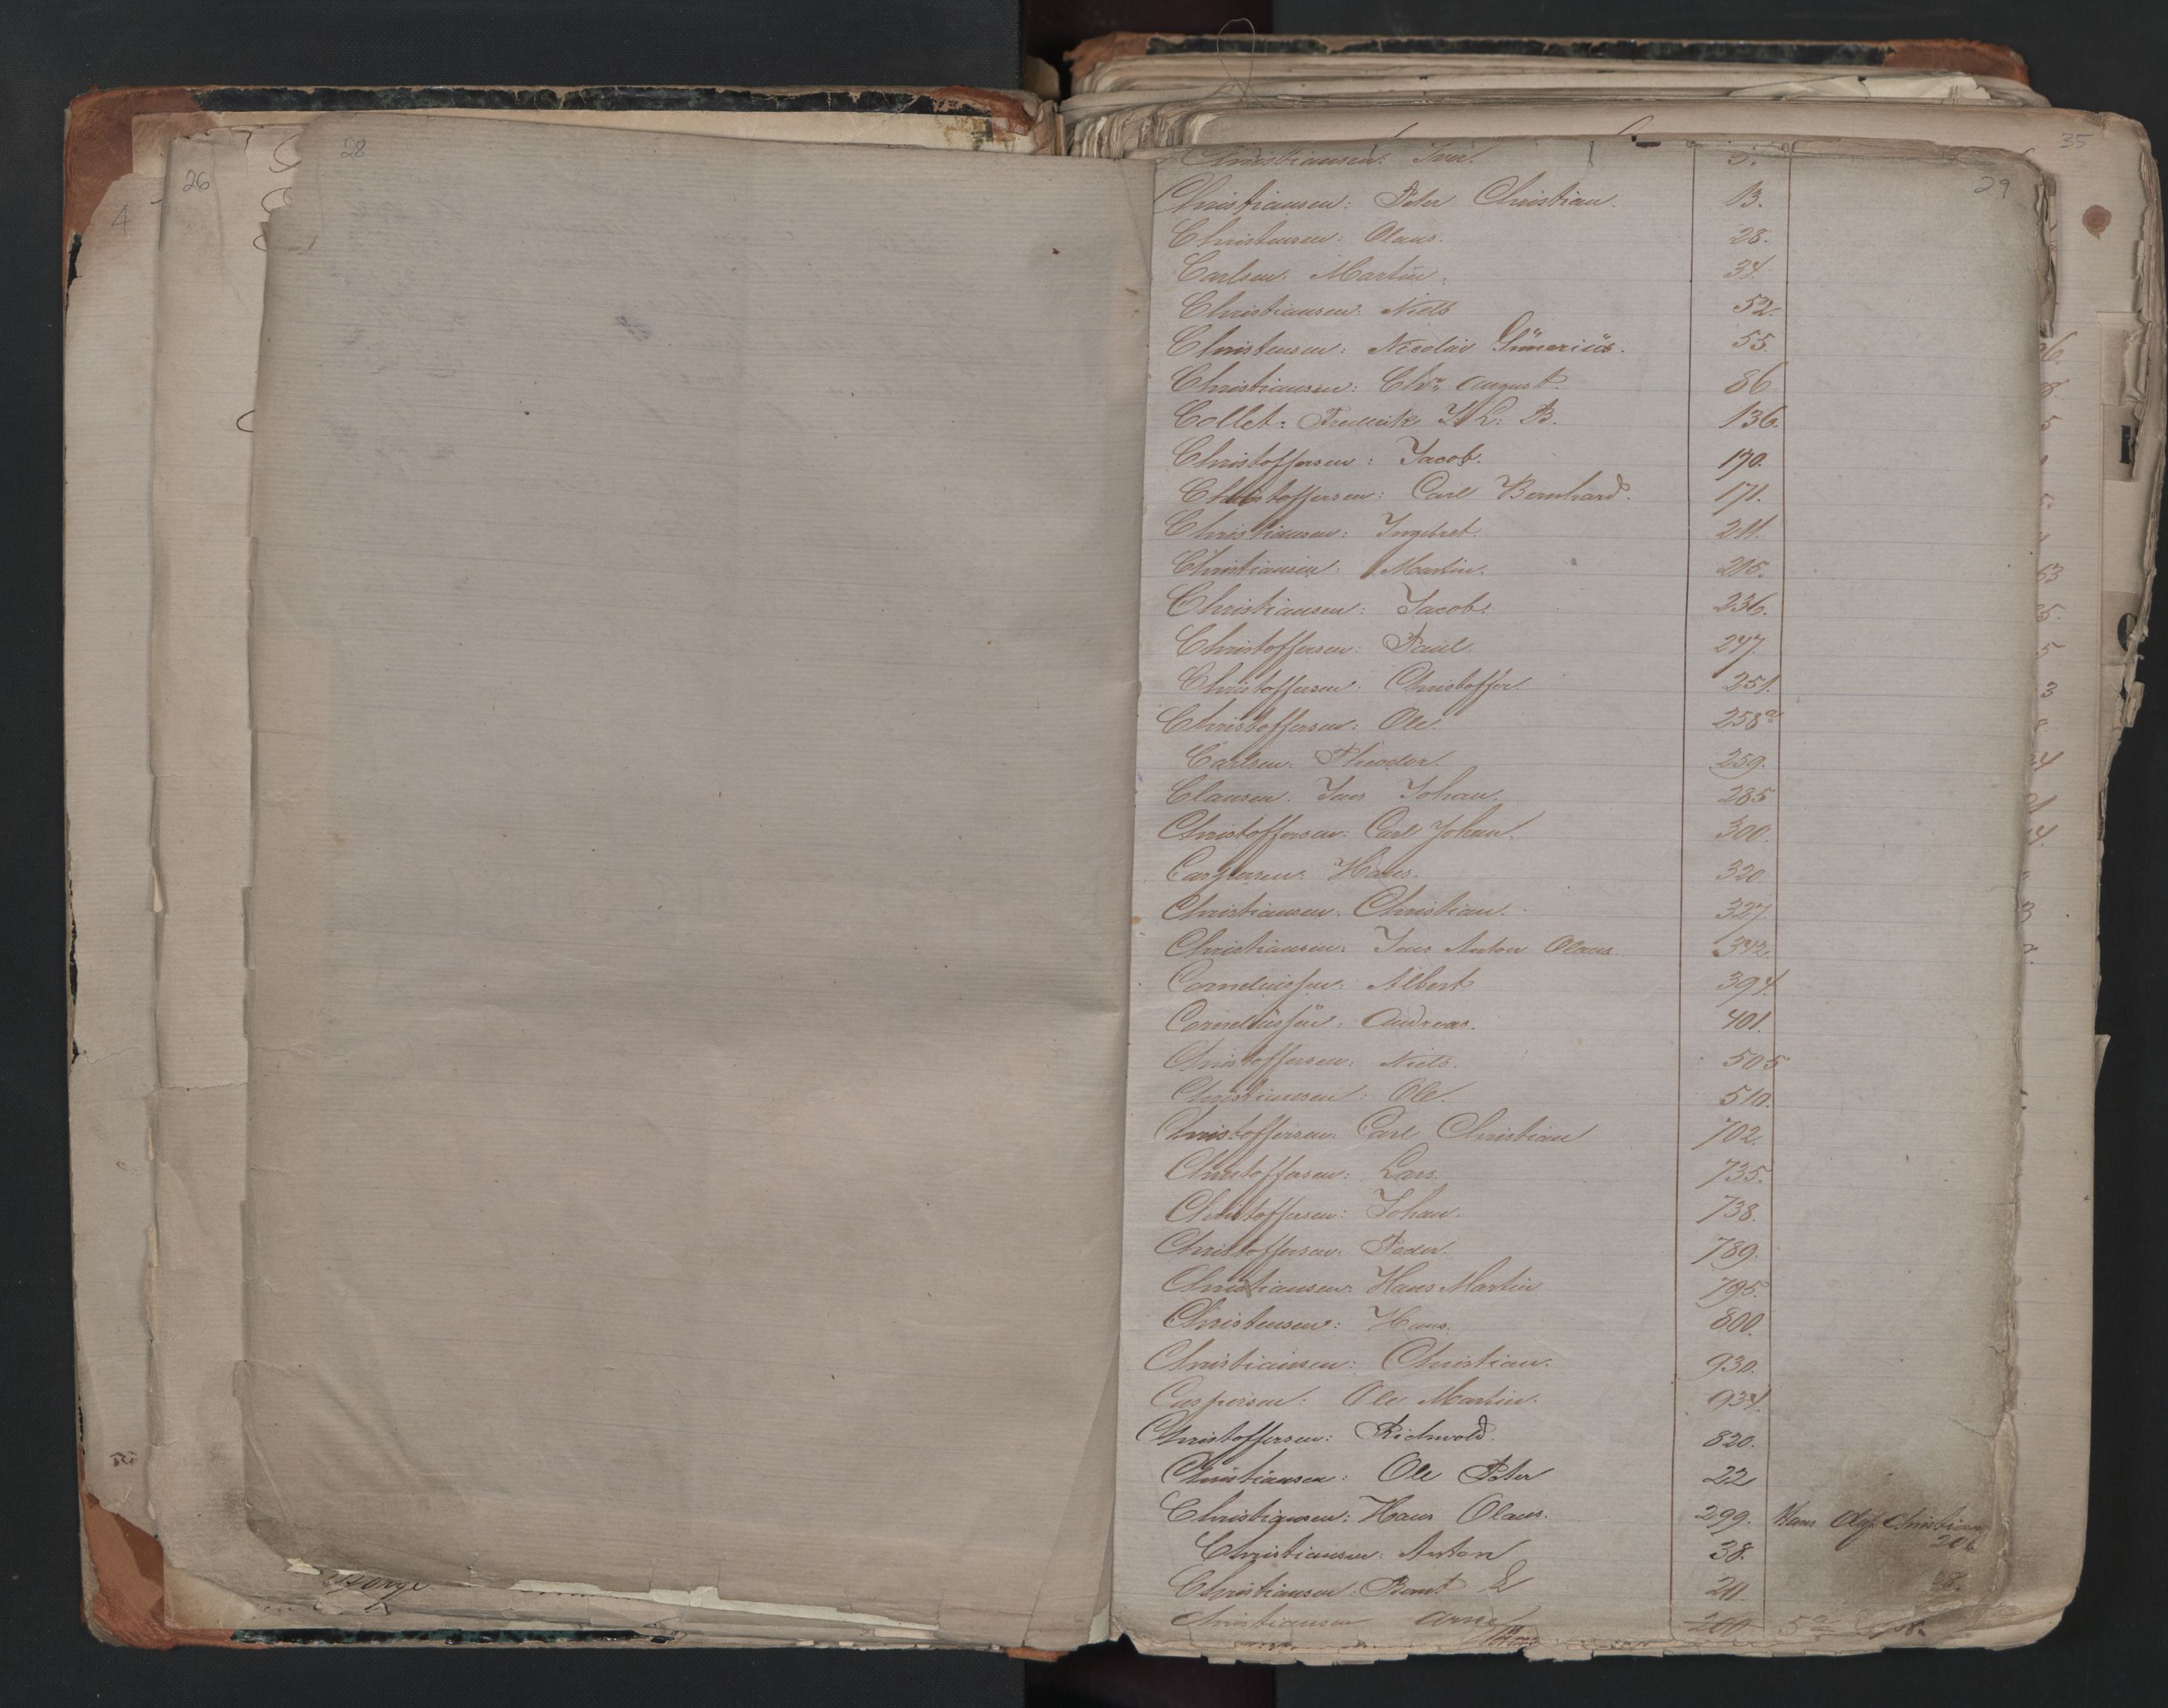 28
26
4
35
29
Christiansen: Iver. 5.
Christiansen: Peter Christian. 13.
Christensen: Olaus. 28.
Carlsen: Martin. 34.
Christiansen: Niels 52.
Christensen: Nicolai 55.
Christiansen: Chr. August. 86
Collet: Fredrik B. 136.
Christoffersen: Jacob. 170.
Christoffersen: Carl Bernhard. 171.
Christiansen: Ingebret. 211.
Christiansen: Martin. 215.
Christiansen: Jacob. 236.
Christoffersen: Paul. 247.
Christoffersen: Christoffer. 251.
Christoffersen: Ole. 258a
Carlsen: Theodor 259.
Clausen. Jens Johan. 285
Christoffersen: Carl Johan. 300.
Caspersen: Hans. 320.
Christiansen. Christian. 327.
Christiansen: Jens Anton Olaus 342.
Corneliussen: Albert 394.
Corneliussen: Andreas. 401.
Christoffersen: Niels. 505
Christiansen: Ole. 510.
Christoffersen: Carl Christian 702.
Christoffersen: Lars. 735.
Christoffersen: Johan. 738.
Christoffersen: Peder. 789.
Christiansen: Hans Martin 795.
Christensen: Hans. 800.
Christiansen: Christian. 930.
Caspersen: Ole Martin. 934.
Christoffersen: Richvold. 820.
Christiansen: Ole Peter 22
Christiansen: Hans Olaus. 299. Hans Christian
Christiansen: Anton 38.
Christiansen: Bernt 20.
Christiansen Arne 200